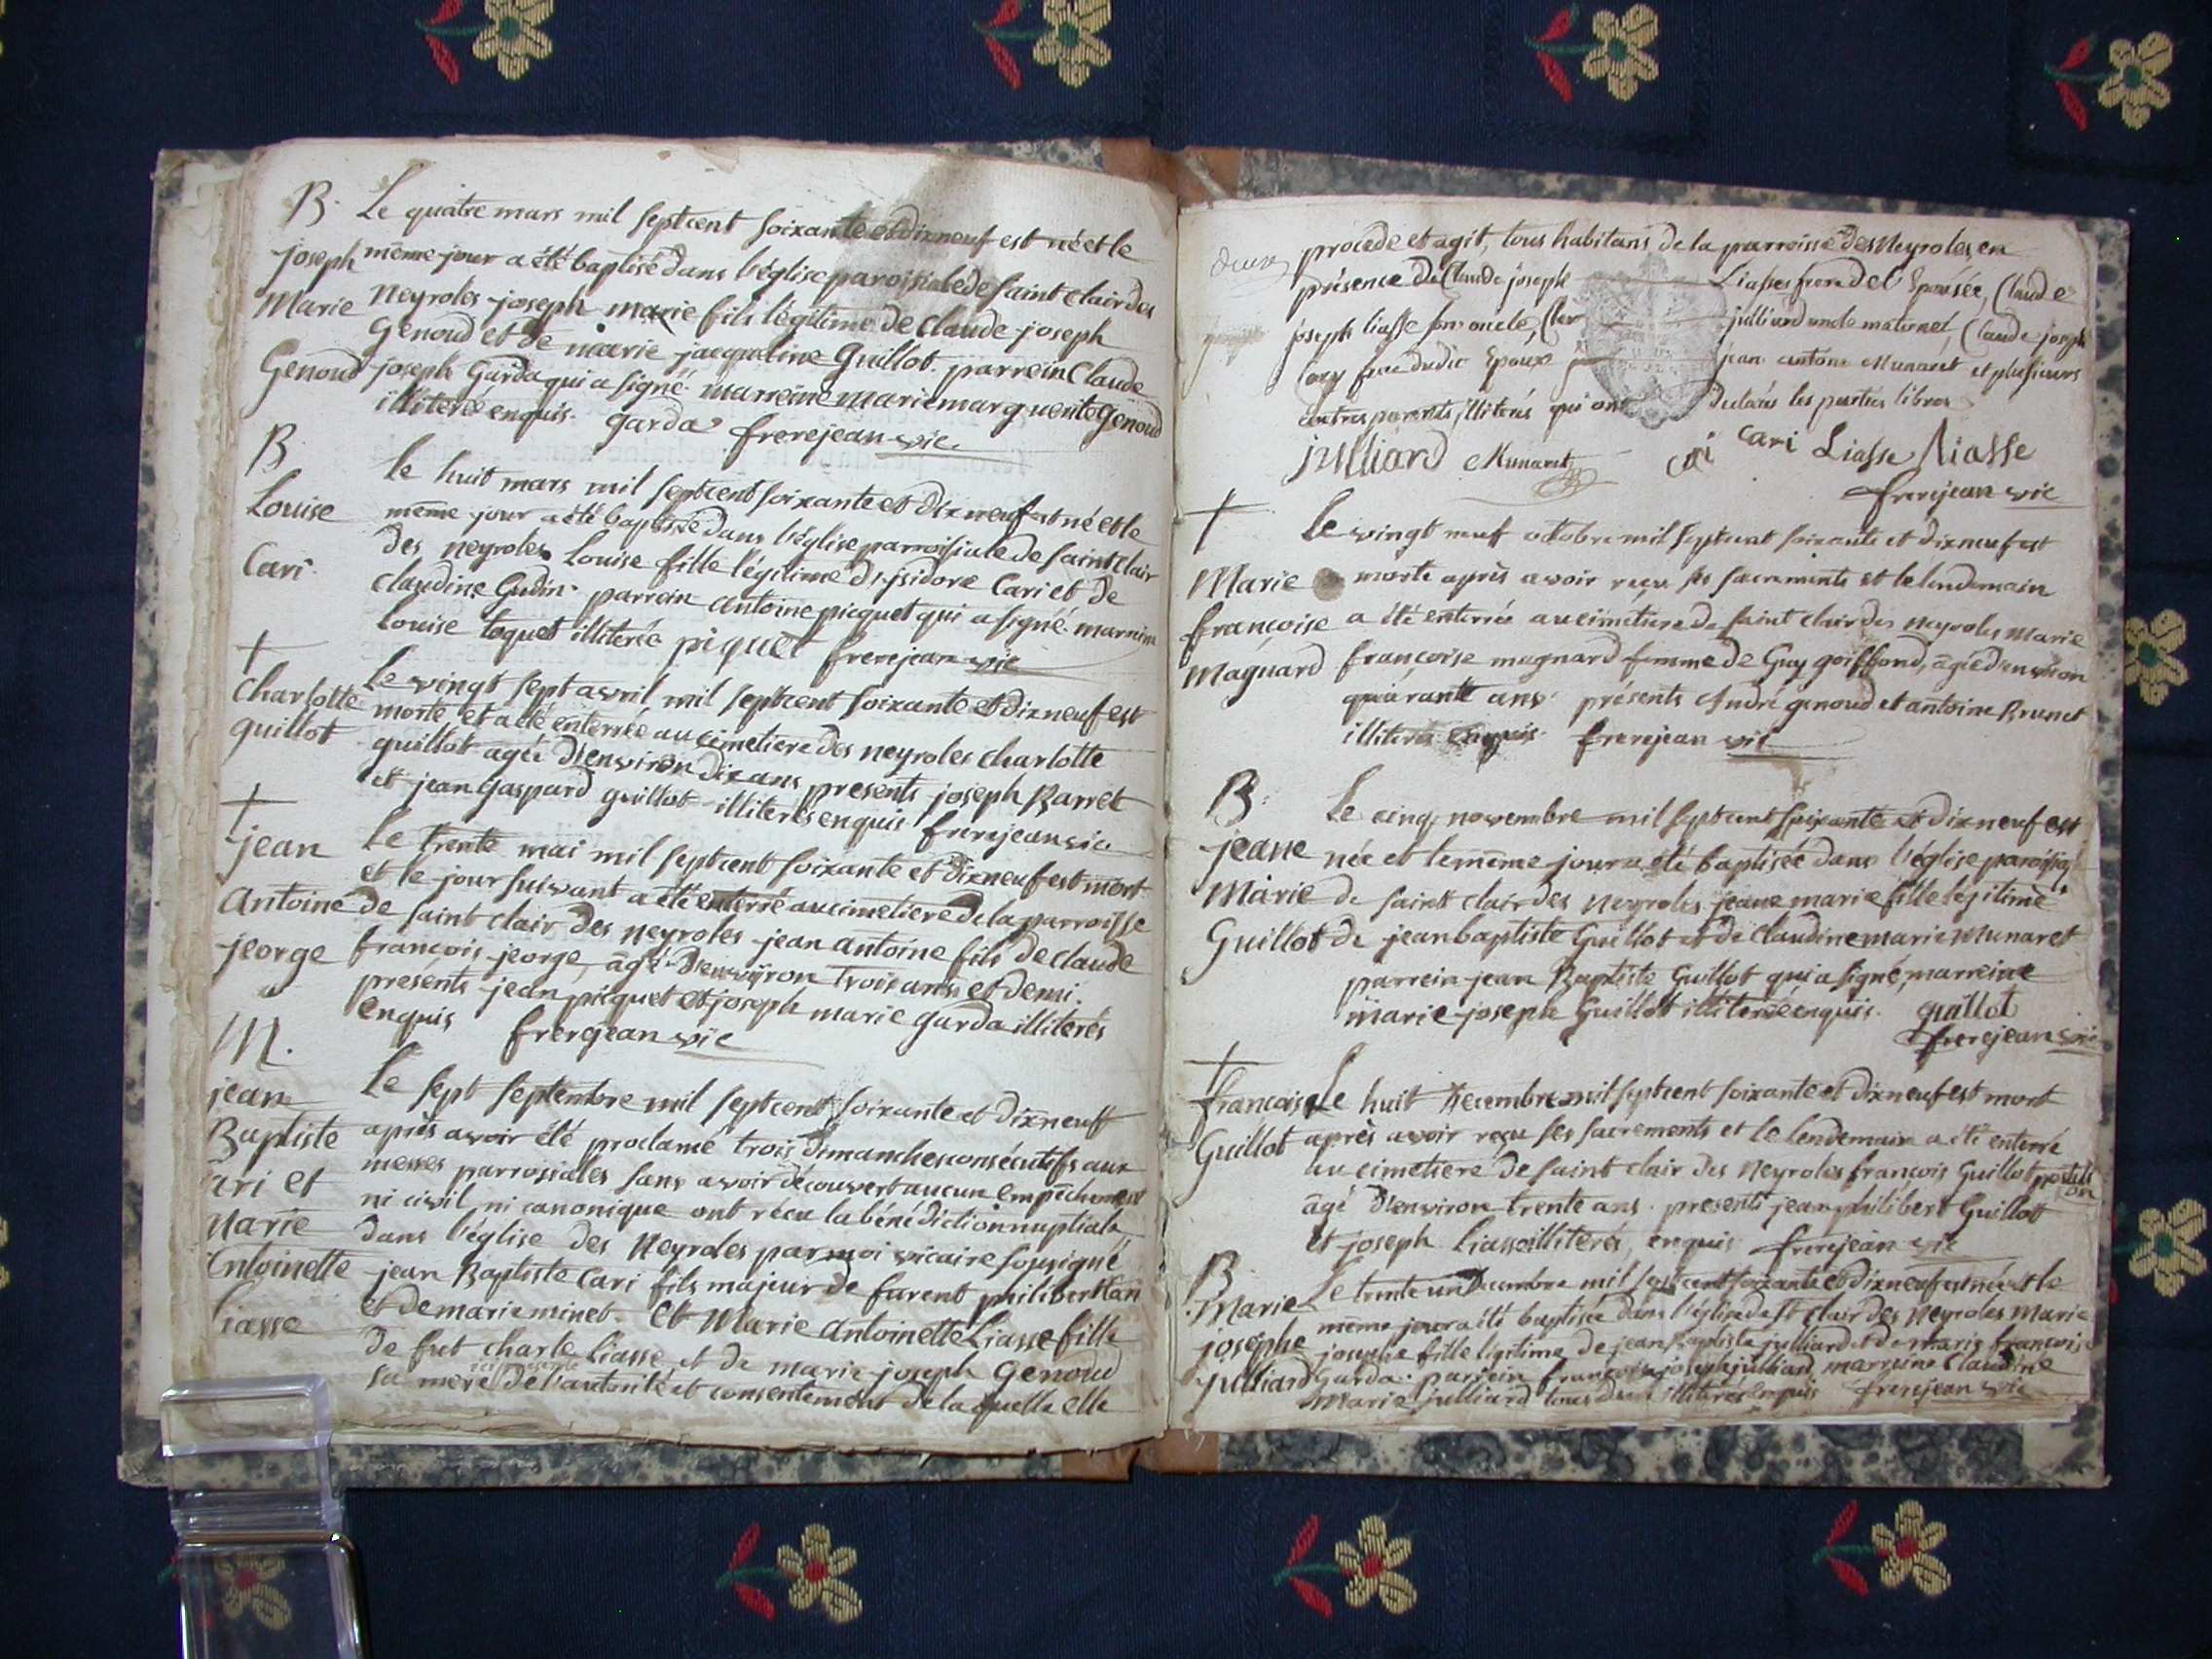 B. Le quatre mars mil septcent soixante et dixneuf est né et le
joseph même jour a été baptisé dans l'église paroissialle de saint clair des
Marie Neyroles joseph marie fils légitime de Claude joseph
Genoud et de marie jacqueline Guillot. parrein Claude
Genoud joseph Garda qui a signé. marreine marie marguerite Genoud
illiterée enquis. garda frerejean vic.
B
Le huit mars mil septcent soixante et dixneuf est né et le
Louise même jour a été baptisée dans l'église parroissiale de saint clair
des neyroles Louise fille légitime d'isidore Cari et de
Cari claudine Gudin. parrein antoine picquet qui a signé. marreine
Louise toquet illiterée piquet frerejean vic
†
Le vingt sept avril mil septcent soixante et dixneuf est
Charlotte morte, et a été enterrée au cimetiere des neyroles charlotte
guillot guillot agée d'environ dix ans presents joseph Barret
et jean gaspard guillot illiterés enquis frerejean vic
†
jean Le trente mai mil septcent soixante et dixneuf est mort
et le jour suivant a été enterré au cimetiere de la parroisse
Antoine de saint clair des neyroles jean antoine fils de claude
jeorge françois jeorge, âgé d'environ trois ans et demi.
presents jean picquet et joseph marie garda illiterés
enquis frerejean vic
M.
jean Le sept septembre mil septcent soixante et dixneuf
Baptiste après avoir été proclamé trois dimanches consécutifs aux
messes parroissiales sans avoir découvert aucun empêchement
Cari et ni civil ni canonique ont récu la bénédiction nuptiale
Marie dans l'église des Neyroles par moi vicaire sousigné
Antoinette jean Baptiste Cari fils majeur de furent philibert Cari
et de marie minet. et Marie Antoinette Liasse fille
Liasse de fut charle liasse et de marie joseph Genoud
sa mere ici presente de l'autorité et consentement de laquelle elle
procede et agit, tous habitans de la parroisse des Neyroles, en
présence de Claude joseph Liasse frere de l'Epousée, Claude
joseph liasse son oncle, julliard oncle maternel, Claude joseph
cary frere dudit Epoux jean antoine Munaret et plusieurs
autres parents illiterés qui ont declarés les parties libres
julliard Munaret cari cari Liasse Liasse
frerejean vic
†
Le vingt neuf octobre mil septcent soixante et dixneuf est
Marie morte après avoir reçu ses sacrements et le lendemain
françoise a été enterrée au cimetiere de saint clair des neyroles Marie
Magnard françoise magnard femme de Guy goiffond, âgée d'environ
quarante ans. présents André genoud et antoine Brunet
illiterés enquis. frerejean vic
B.
Le cinq novembre mil septcent soixante et dixneuf est
jeane née et le même jour a été baptisée dans l'église paroissial
Marie de saint clair des neyroles jeane marie fille légitime
Guillot de jean baptiste Guillot et de claudine marie Munaret
parrein jean Baptiste Guillot qui a signé, marreine
marie joseph Guillot illiterée enquis. guillot
frerejean vic
†
françois Le huit decembre mil septcent soixante et dixneuf est mort
Guillot après avoir reçu ses sacrements et le lendemain a été enterré
au cimetiere de saint clair des Neyroles françois Guillot
âgé d'environ trente ans. presents jean philibert Guillot
et joseph Liasse illiterés, enquis frerejean vic
B.
Marie Le trente un decembre mil septcent soixante et dixneuf est née et le
même jour a été baptisée dans l'église de st clair des neyroles Marie
josephe josephe fille légitime de jean Baptiste julliard et de marie françoise
julliard Garda. parrein françois joseph julliard marreine Claudine
Marie julliard tous deux illiterés enquis frerejean vic